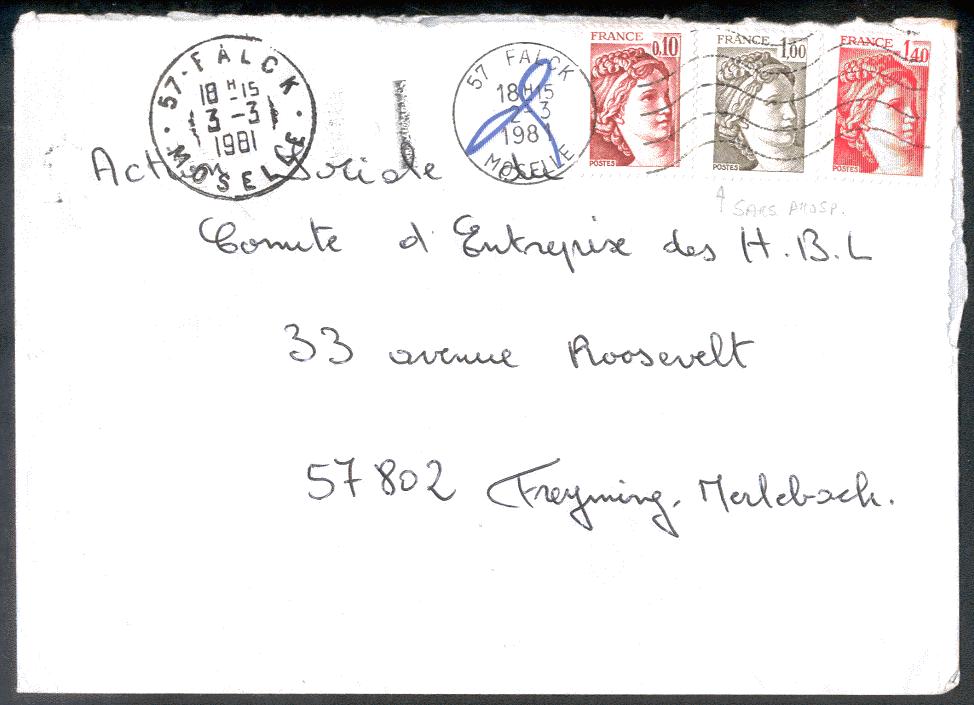 57-FALCK
18H-15
3-3
1981
MOSELLE
57 FALCK
18H15
2-3
1981
MOSELLE
FRANCE 0,10
POSTES
FRANCE 1,00
POSTES
FRANCE 1,40
POSTES
Action Sociale du
SANS PHOSP.
Comite d'Entreprise des H.B.L
33 avenue Roosevelt
57802 Freyming. Merlebach.